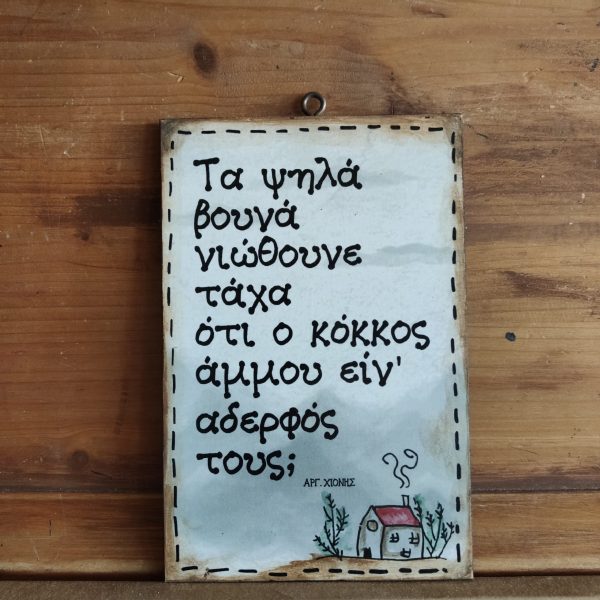 Τα ψηλά
βουνά
νιώθουνε
τάχα
ότι ο κόκκος
άμμου είν'
αδερφός
τους;
ΑΡΓ. ΧΙΟΝΗΣ